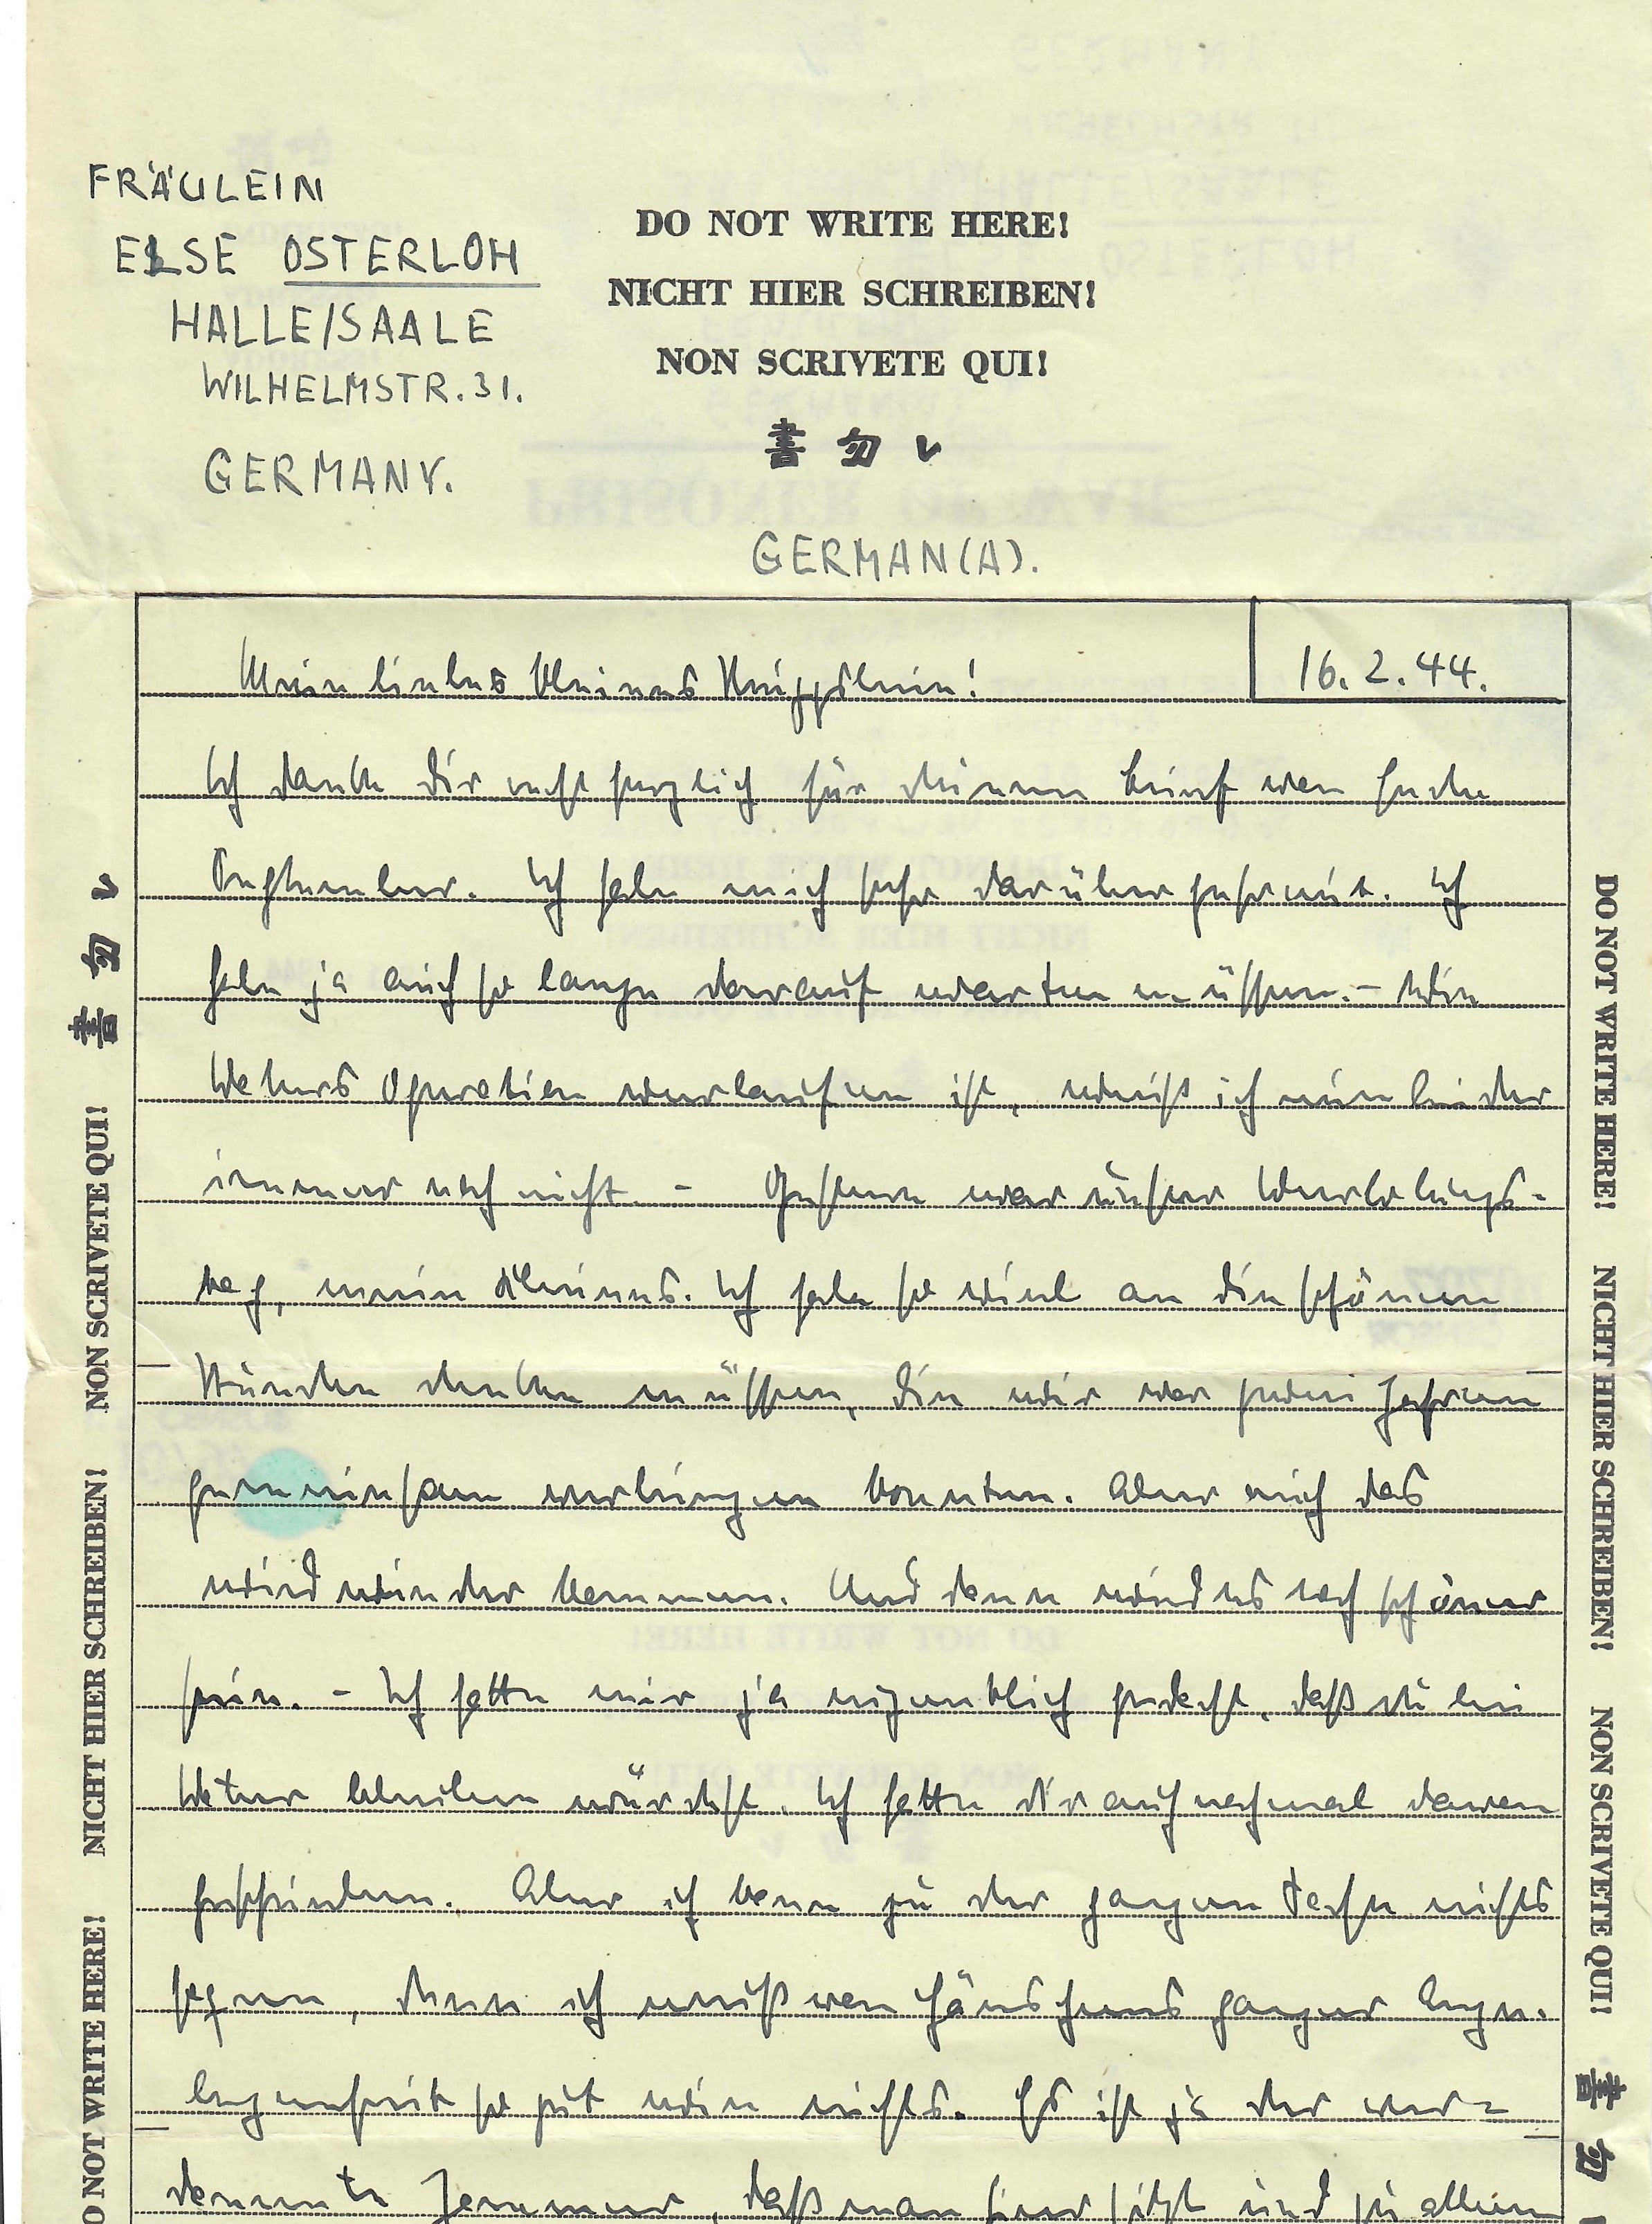 FRÄULEIN
ELSE OSTERLOH
HALLE/SAALE
WILHELMSTR. 31.
GERMANY.
DO NOT WRITE HERE!
NICHT HIER SCHREIBEN!
NON SCRIVETE QUI!
書 勿 レ
GERMAN(A).
16.2.44.
Mein liebes kleines
Ich danke Dir recht herzlich für deinen Brief von Ende
September. Ich habe mich sehr darüber gefreut. Ich
habe ja auch so lange darauf warten müssen. – Wie
Vaters Operation verlaufen ist, weiß ich nun leider
immer noch nicht. – Gestern war unser Verlobungs-
tag, mein Kleines. Ich habe so viel an die schönen
Stunden denken müssen, die wir vor zwei Jahren
gemeinsam verbringen konnten. Aber auch das
wird wieder kommen. Und dann wird es noch schöner
sein. – Ich hatte mir ja eigentlich gedacht, daß du bei
Vater bleiben würdest. Ich hatte dir auch nochmal davon
geschrieben. Aber ich kann zu der ganzen Sache nichts
sagen, denn ich weiß von Hänschens ganzer Ange-
legenheit so gut wie nichts. Es ist ja der ver-
dammte Jammer, daß man hier sitzt und zu allem
DO NOT WRITE HERE! NICHT HIER SCHREIBEN! NON SCRIVETE QUI! 書 勿 レ
DO NOT WRITE HERE! NICHT HIER SCHREIBEN! NON SCRIVETE QUI! 書 勿